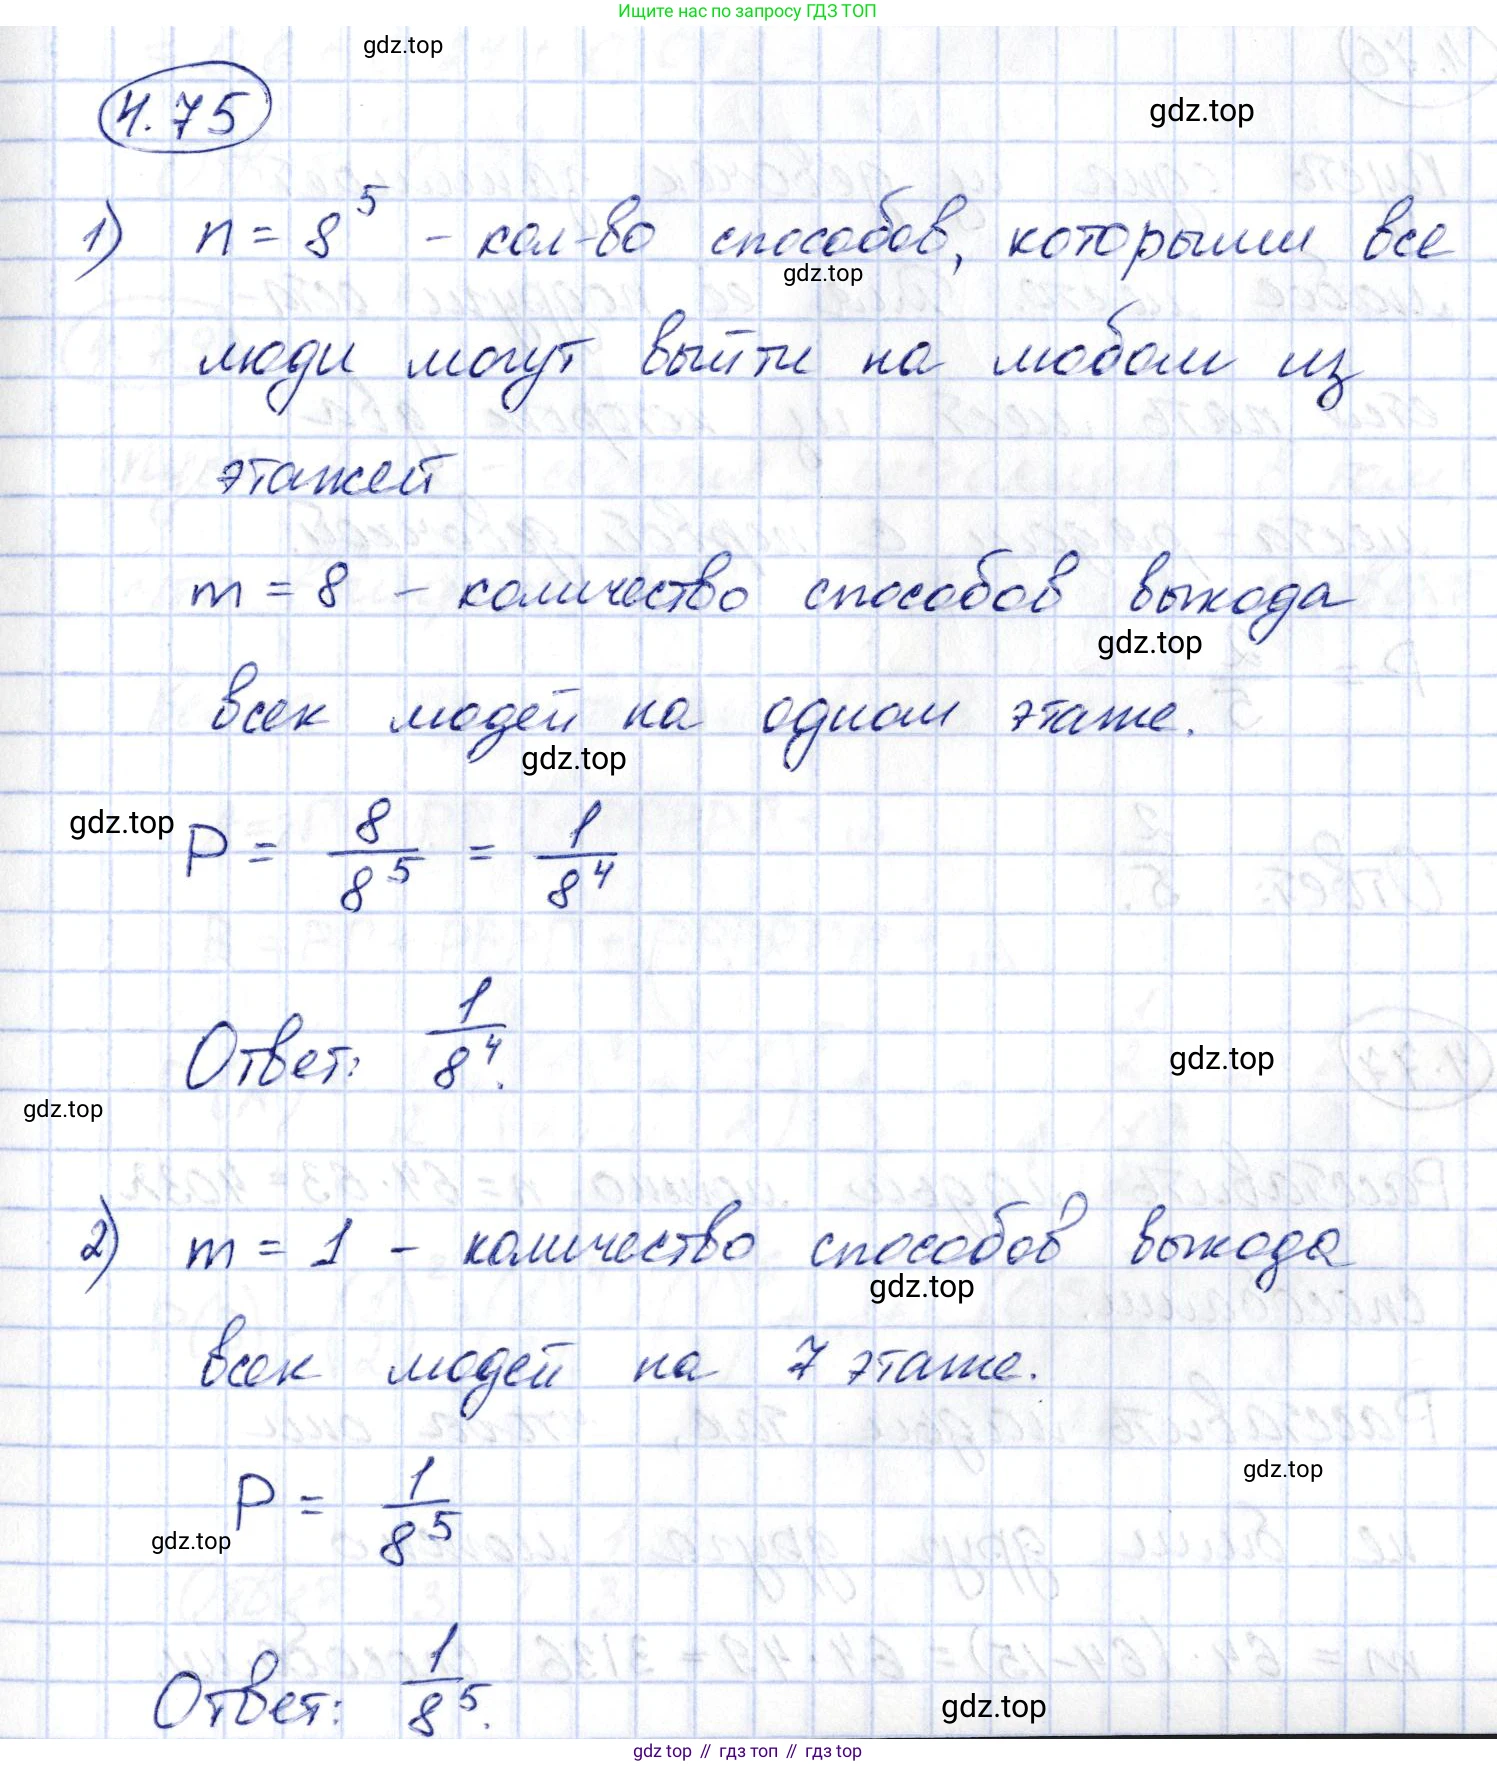 Ищите нас по запросу ГДЗ ТОП
gdz.top
4.75
gdz.top
1) n = 8^5 - кол-во способов, которыми все
gdz.top
люди могут выйти на любом из
этажей
m = 8 - количество способов выхода
gdz.top
всех людей на одном этаже.
gdz.top
gdz.top
P = 8/8^5 = 1/8^4
Ответ: 1/8^4.
gdz.top
gdz.top
2) m = 1 - количество способов выхода
gdz.top
всех людей на 7 этаже.
gdz.top
P = 1/8^5
gdz.top
Ответ: 1/8^5.
gdz.top
gdz top // гдз топ // гдз top